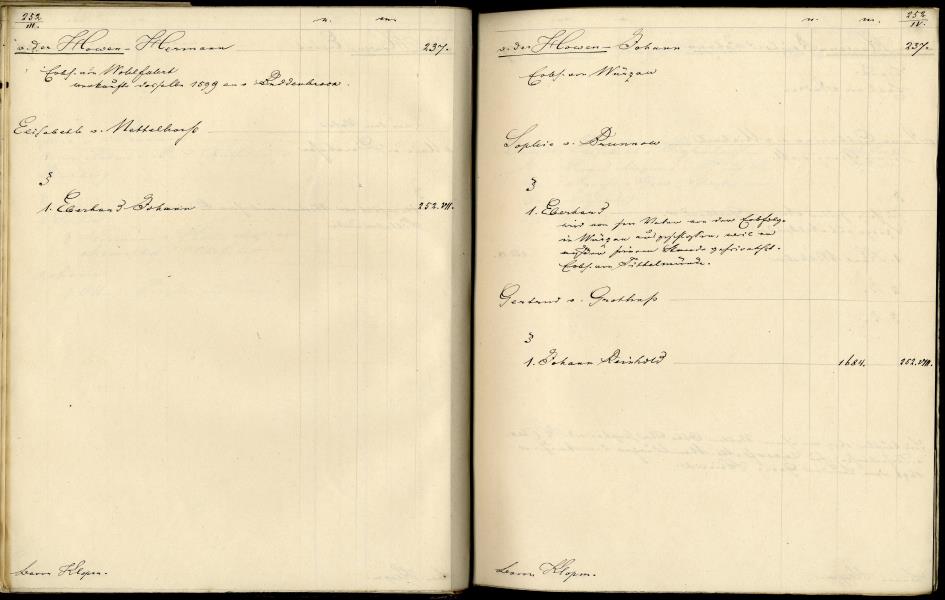 252
III.
n. m.
v. der Howen - Hermann 237.
Erbh. von Wohlfahrt
verkaufte dasselbe 1599 an v. Buddenbrock.
Elisabeth v. Nettelhorst
3
1. Eberhard Johann 252.VII.
Baron Klopm.
252
IV.
n. m.
v. der Howen - Johann 237.
Erbh. von Würzau
Sophie v. Brunnow
3
1. Eberhard
wird von sein Vater von der Erbfolge
in Würzau ausgeschlossen, weil er
außer seinem Stande geheirathet.
Erbh. von Tittelmünde.
Gertrud v. Grotthuß
3
1. Johann Reinhold 1684. 252.VIII.
Baron Klopm.